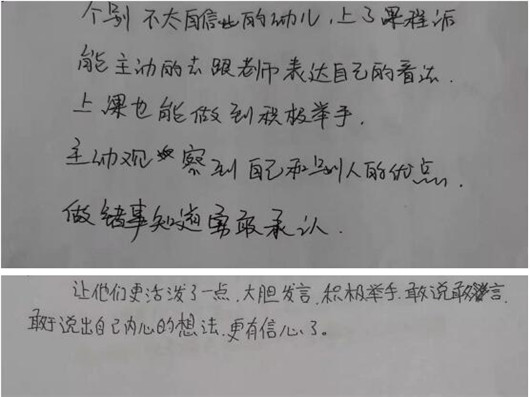 个别不太自信的幼儿，上了课程后
能主动的去跟老师表达自己的看法.
上课也能做到积极举手.
主动观察到自己和别人的优点.
做错事知道勇敢承认.
让他们更活泼了一点，大胆发言，积极举手.敢说敢言，
敢于说出自己内心的想法，更有信心了。